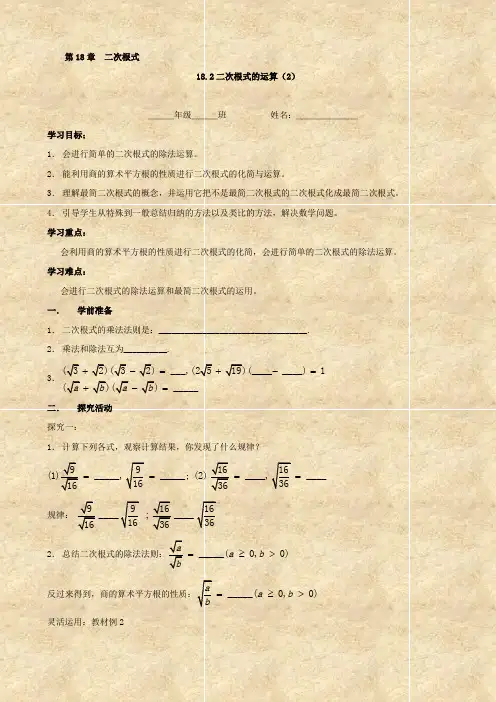 第18章 二次根式
18.2二次根式的运算（2）
_____年级_____班 姓名：____________
学习目标：
1. 会进行简单的二次根式的除法运算。
2. 能利用商的算术平方根的性质进行二次根式的化简与运算。
3. 理解最简二次根式的概念，并运用它把不是最简二次根式的二次根式化成最简二次根式。
4. 引导学生从特殊到一般总结归纳的方法以及类比的方法，解决数学问题。
学习重点：
会利用商的算术平方根的性质进行二次根式的化简，会进行简单的二次根式的除法运算。
学习难点：
会进行二次根式的除法运算和最简二次根式的运用。
一. 学前准备
1. 二次根式的乘法法则是：______________________________.
2. 乘法和除法互为_________.
3. (√3 + √2)(√3 − √2) = ___,(2√5 + √19)(____− ____) = 1
(√a + √b)(√a − √b) = _____
二. 探究活动
探究一：
1. 计算下列各式，观察计算结果，你发现了什么规律？
(1) √9/√16 = _____, √(9/16) = _____; (2) √16/√36 = ____, √(16/36) = ____
规律： √9/√16 ____ √(9/16) ; √16/√36 ____ √(16/36)
2. 总结二次根式的除法法则: √a/√b = _____(a ≥ 0, b > 0)
反过来得到，商的算术平方根的性质: √(a/b) = _____(a ≥ 0, b > 0)
灵活运用：教材例2